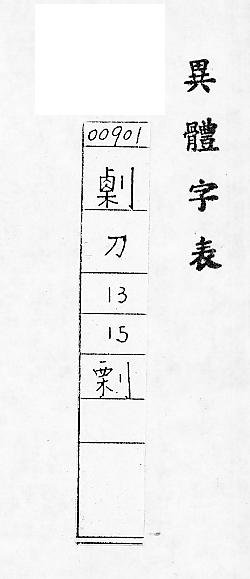 異體字表
00901
刀
13
15